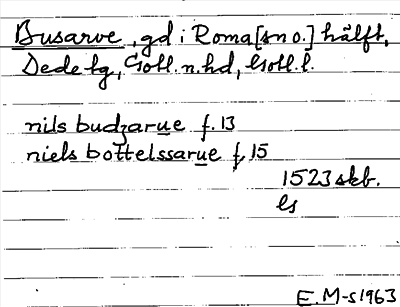 Busarve, gd i Roma [sn o.] hälft,
Dede tg, Gotl. n. hd, Gotl. l.
nils budzarue f. 13
niels bottelssarue f. 15
1523 skb.
ls
E.M-s 1963